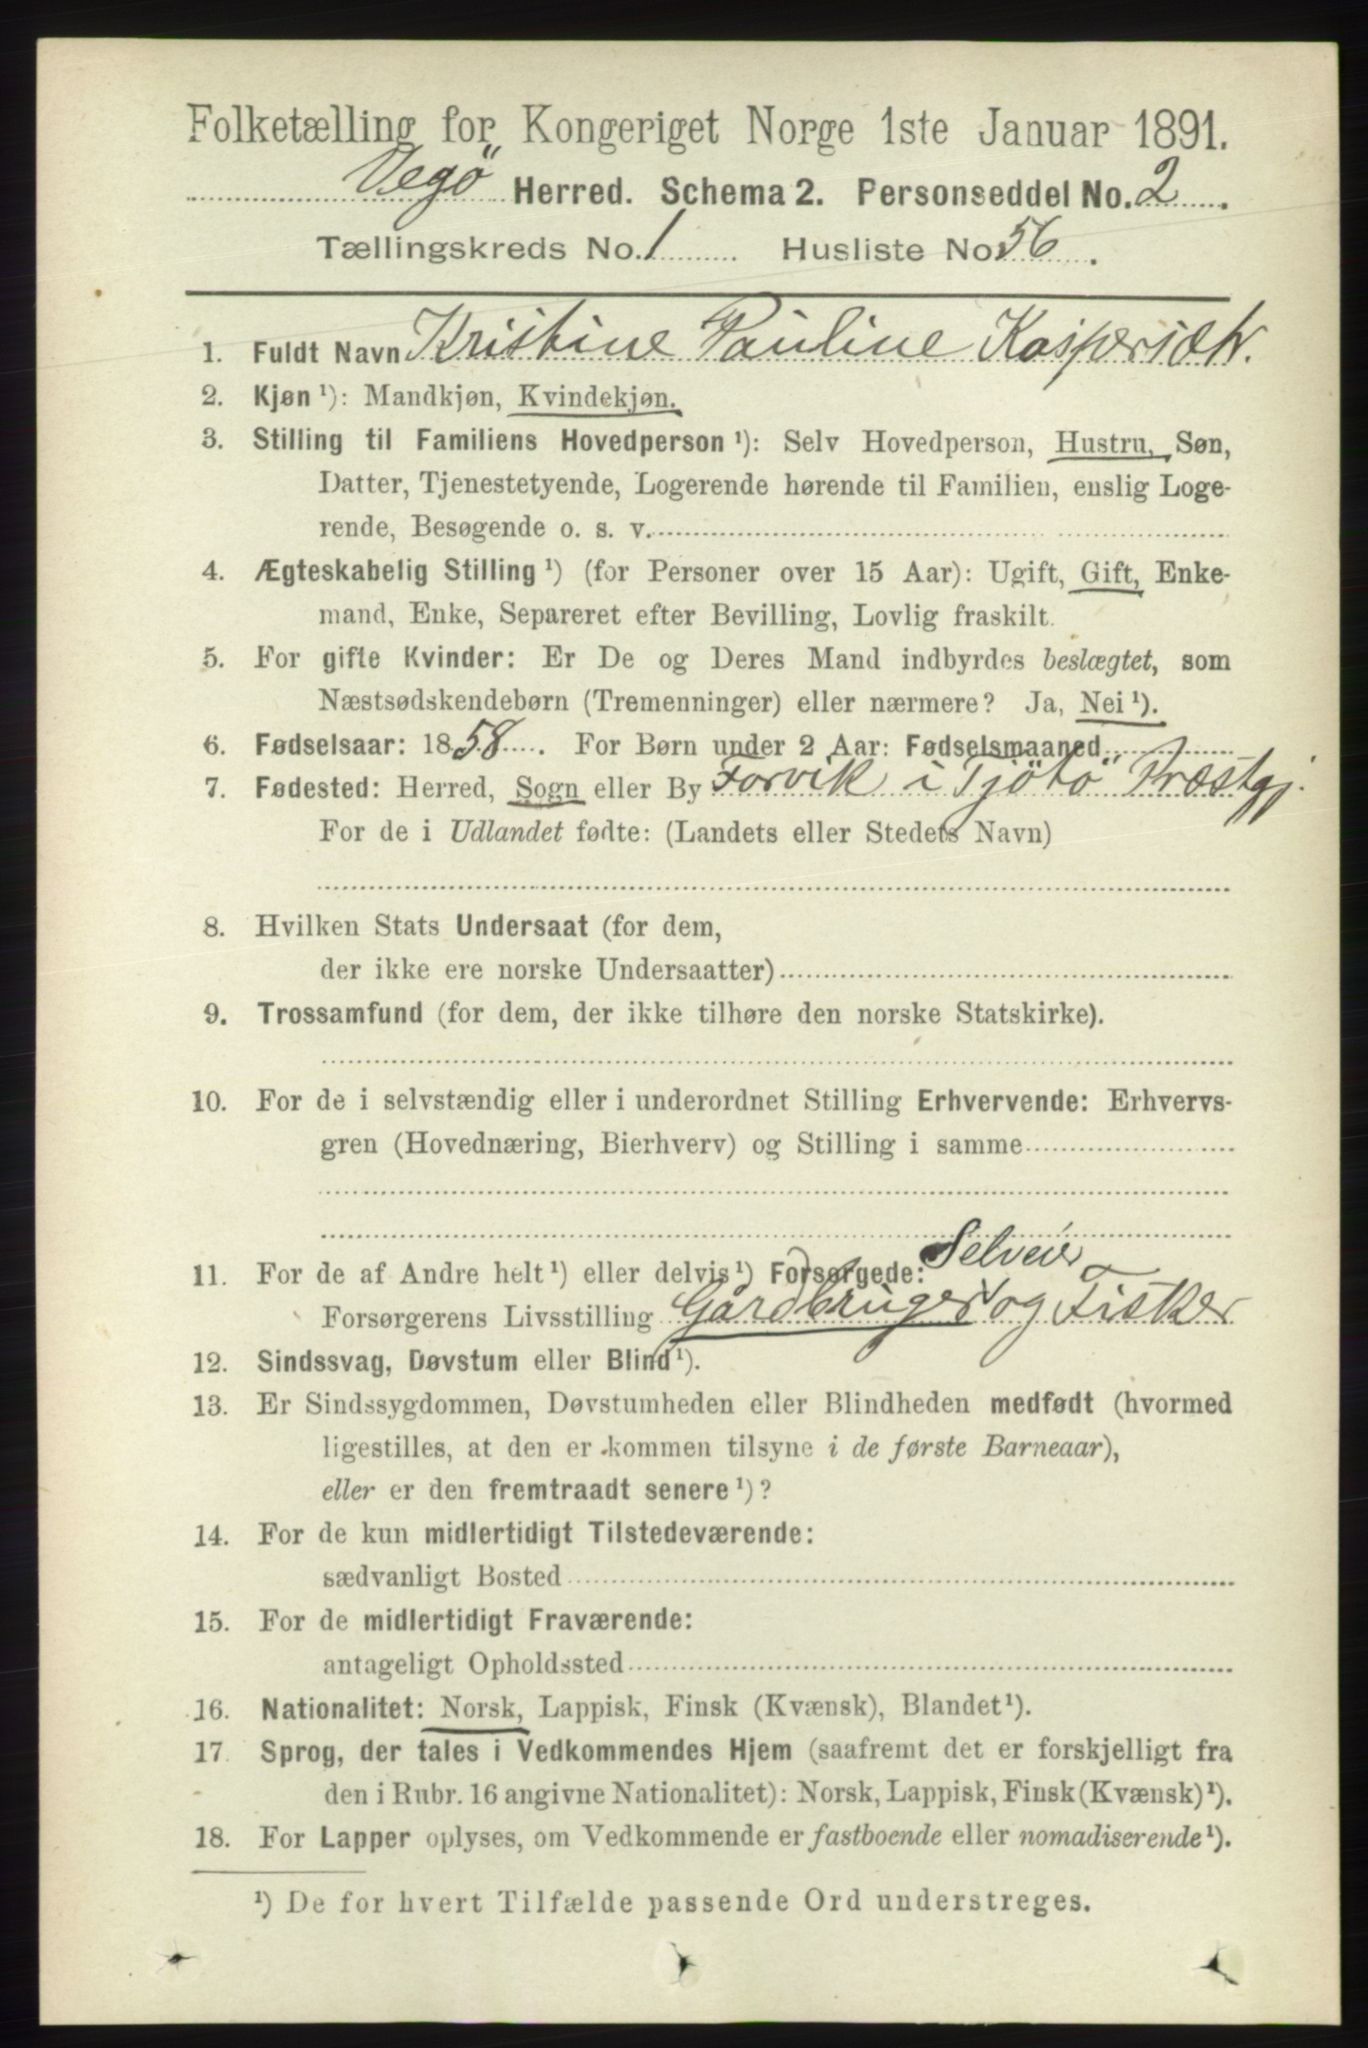 Folketælling for Kongeriget Norge 1ste Januar 1891.
Vegö Herred. Schema 2. Personseddel No. 2.
Tællingskreds No. 1 Husliste No. 56.
1. Fuldt Navn Kristine Pauline Kaspersdtr.
2. Kjøn ¹): Mandkjøn, Kvindekjøn.
3. Stilling til Familiens Hovedperson ¹): Selv Hovedperson, Hustru, Søn,
Datter, Tjenestetyende, Logerende hørende til Familien, enslig Loge-
rende, Besøgende o. s. v.
4. Ægteskabelig Stilling ¹) (for Personer over 15 Aar): Ugift, Gift, Enke-
mand, Enke, Separeret efter Bevilling, Lovlig fraskilt.
5. For gifte Kvinder: Er De og Deres Mand indbyrdes beslægtet, som
Næstsødskendebørn (Tremenninger) eller nærmere? Ja, Nei ¹).
6. Fødselsaar: 1858. For Børn under 2 Aar: Fødselsmaaned
7. Fødested: Herred, Sogn eller By Forvik i Tjötö Præstgj.
For de i Udlandet fødte: (Landets eller Stedets Navn)
8. Hvilken Stats Undersaat (for dem,
der ikke ere norske Undersaatter)
9. Trossamfund (for dem, der ikke tilhøre den norske Statskirke).
10. For de i selvstændig eller i underordnet Stilling Erhvervende: Erhvervs-
gren (Hovednæring, Bierhverv) og Stilling i samme
Selveier
11. For de af Andre helt ¹) eller delvis ¹) Forsørgede:
Forsørgerens Livsstilling Gårdbruger og Fisker
12. Sindssvag, Døvstum eller Blind ¹).
13. Er Sindssygdommen, Døvstumheden eller Blindheden medfødt (hvormed
ligestilles, at den er kommen tilsyne i de første Barneaar),
eller er den fremtraadt senere ¹)?
14. For de kun midlertidigt Tilstedeværende:
sædvanligt Bosted
15. For de midlertidigt Fraværende:
antageligt Opholdssted
16. Nationalitet: Norsk, Lappisk, Finsk (Kvænsk), Blandet ¹).
17. Sprog, der tales i Vedkommendes Hjem (saafremt det er forskjelligt fra
den i Rubr. 16 angivne Nationalitet): Norsk, Lappisk, Finsk (Kvænsk) ¹).
18. For Lapper oplyses, om Vedkommende er fastboende eller nomadiserende ¹).
¹) De for hvert Tilfælde passende Ord understreges.